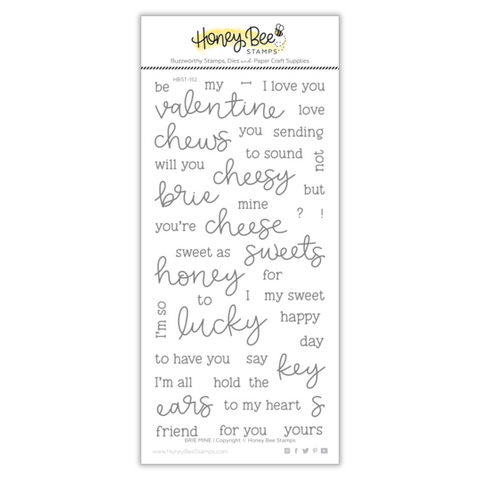 Honey Bee
STAMPS
Buzzworthy Stamps, Dies and Paper Craft Supplies
HBST-152
be my I love you
valentine love
chews you sending
to sound not
will you cheesy
brie mine but
? !
you're cheese
sweet as sweets
honey for
to I my sweet
I'm so lucky happy
day
to have you say key
I'm all hold the
ears to my heart s
friend for you yours
BRIE MINE | Copyright © Honey Bee Stamps
www.HoneyBeeStamps.com